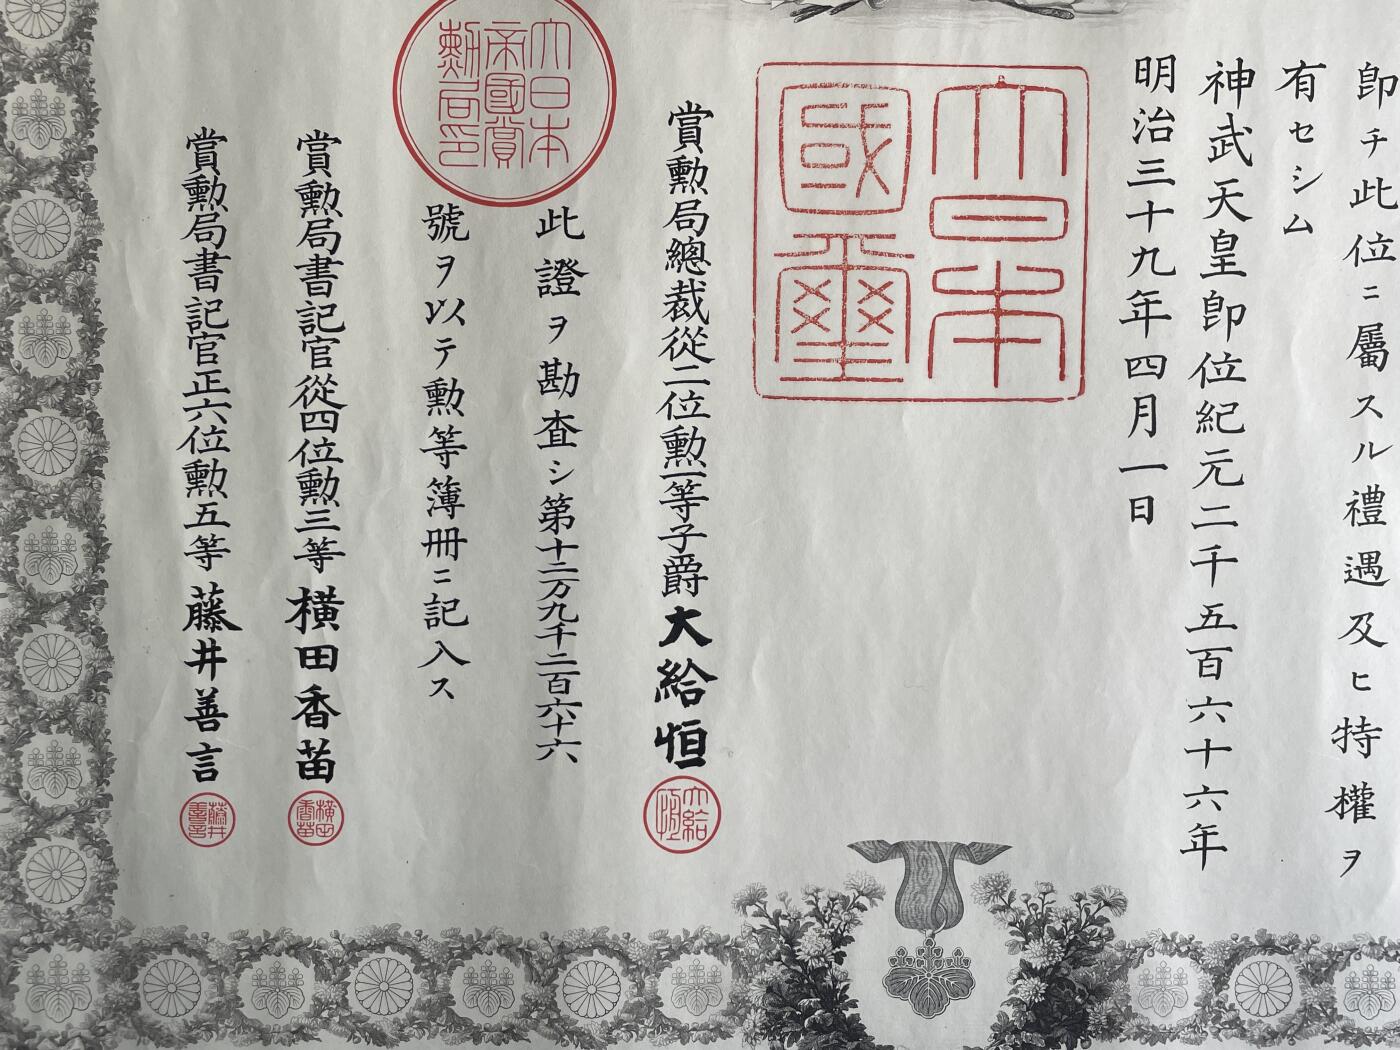 即チ此位ニ屬スル禮遇及ヒ特權ヲ
有セシム
神武天皇即位紀元二千五百六十六年
明治三十九年四月一日
大日本
國璽
賞勲局總裁從二位勲一等子爵大給恒
大給
恒
此證ヲ勘査シ第十二万九千二百六十六
號ヲ以テ勲等簿册ニ記入ス
大日本
帝國賞
勲局印
賞勲局書記官從四位勲三等橫田香苗
橫田
香苗
賞勲局書記官正六位勲五等藤井善言
藤井
善言